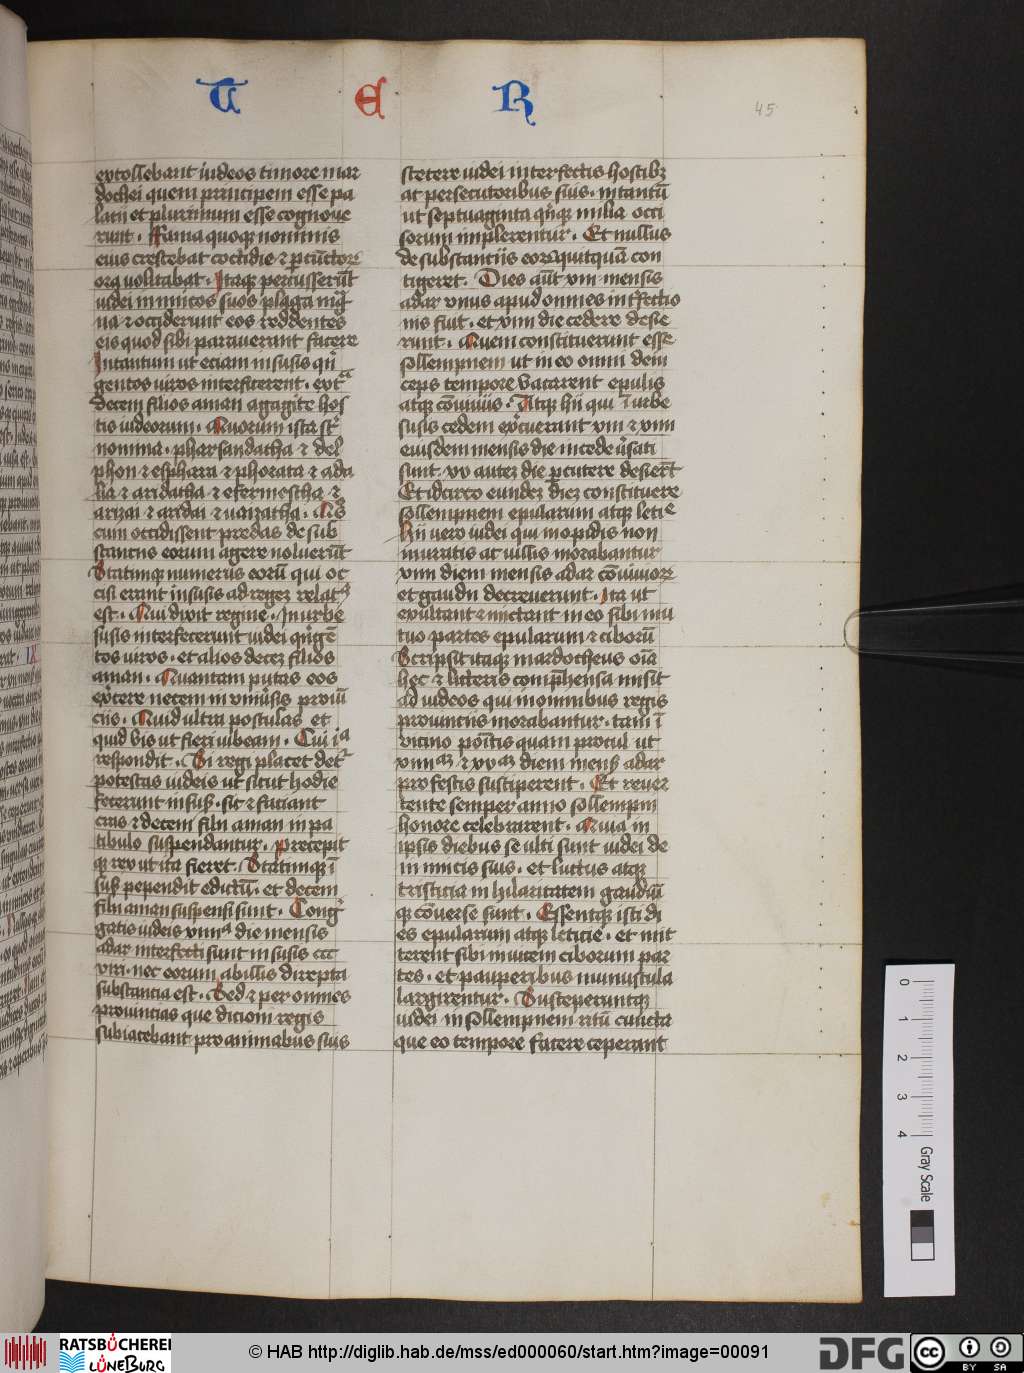 T E R
45
extollebant iudeos timore mar
dochei quem principem esse pa
latii et plurimum esse cognoue
runt . Fama quoque nominis
eius crescebat cottidie ⁊ ꝑ cūctorꝫ
ora uolitabat . Itaqꝫ percusserūt
iudei inimicos suos plaga mag
na ⁊ occiderunt eos reddentes
eis quod sibi parauerant facere
Intantum ut eciam in susis qn̄
gentos uiros interficerent . extᵃ
decem filios aman agagite hos
tis iudeorum . Quorum ista sūt
nomina . pharsandatha ⁊ del
phon ⁊ esphata ⁊ phorata ⁊ ada
lia ⁊ aridatha ⁊ efermestha ⁊
arizai ⁊ aridai ⁊ uaizatha . Qᵒs
cum occidissent predas de sub
stanciis eorum agere noluerūt
Statimqꝫ numerus eorū qui oc
cisi erant in susis ad regē relatꝰ
est . Qui dixit regine . In urbe
susis interfecerunt iudei qīgē
tos uiros . et alios decez filios
aman . Quantam putas eos
ex̄cere necem in vniūsis prouī
ciis . Quid ultra postulas et
quid vis ut fieri iubeam . Cui iᵃ
respondit . Si regi placet detᵘʳ
potestas iudeis ut̄ sicut hodie
fecerunt in susꝭ . sic ⁊ faciant
cras ⁊ decem filii aman in pa
tibulo suspendantur . precepit
qꝫ rex ut ita fieret . Statimqꝫ ī
susꝭ pependit edictū . et decem
filii aman suspensi sunt . Congᵉ
gatis iudeis xiiiiᵃ die mensis
adar interfecti sunt in susis ccc
viri . nec eorum ab illis direpta
substancia est . Sed ⁊ per omnes
prouincias que dicioni regis
subiacebant pro animabus suis
stetere iudei interfectis hostibꝫ
ac persecutoribus suis . in tantū
ut septuaginta qn̄qꝫ milia occi
sorum implerentur . Et nullus
de substantiis eorꝫ quitquā con
tigeret . Dies aūt xiii mensis
adar vnus apud omnes int̄fectio
nis fuit . et xiiii die cedere desie
runt . Quem constituerunt esse
sollempnem ut in eo omni dein
ceps tempore vacarent epulis
atqꝫ cōuiuiis . Atqꝫ hii qui ī urbe
susis cedem ex̄cuerant xiii ⁊ xiiii
eiusdem mensis die in cede ūsati
sunt . xv autez die ꝑcutere desierūt
Et idcirco eundez diez constituere
sollempnem epularum atqꝫ leticᵉ
hii vero iudei qui in opidis non
muratis ac uillis morabantur
xiiii diem mensis adar cōuiuiorꝫ
et gaudii decreuerunt . Ita ut
exultant ⁊ mictant in eo sibi mu
tuo partes epularum ⁊ ciborū
Scripsit itaqꝫ mardocheus oīa
hec ⁊ litteris comp̄hensa misit
ad iudeos qui in omnibus regis
prouinciis morabantur . tam ī
vicino poītis quam procul ut
xiiiiᵃᵐ ⁊ xvᵃᵐ diem mensꝭ adar
pro festis susciperent . Et reuer
tente semper anno sollempni
honore celebrarent . Quia in
ipsis diebus se ulti sunt iudei de
inimicis suis . et luctus atqꝫ
tristicia in hilaritatem gaudiū
qꝫ cōuerse sunt . Essentqꝫ isti di
es epularum atqꝫ leticie . et mit
terent sibi inuicem ciborum par
tes . et pauperibus munuscula
largirentur . Susceperuntqꝫ
iudei in sollempnem ritū cuncta
que eo tempore facere ceperant
0
1
2
3
4
Gray Scale
RATSBÜCHEREI
LÜNEBURG
© HAB http://diglib.hab.de/mss/ed000060/start.htm?image=00091
DFG
cc
BY SA